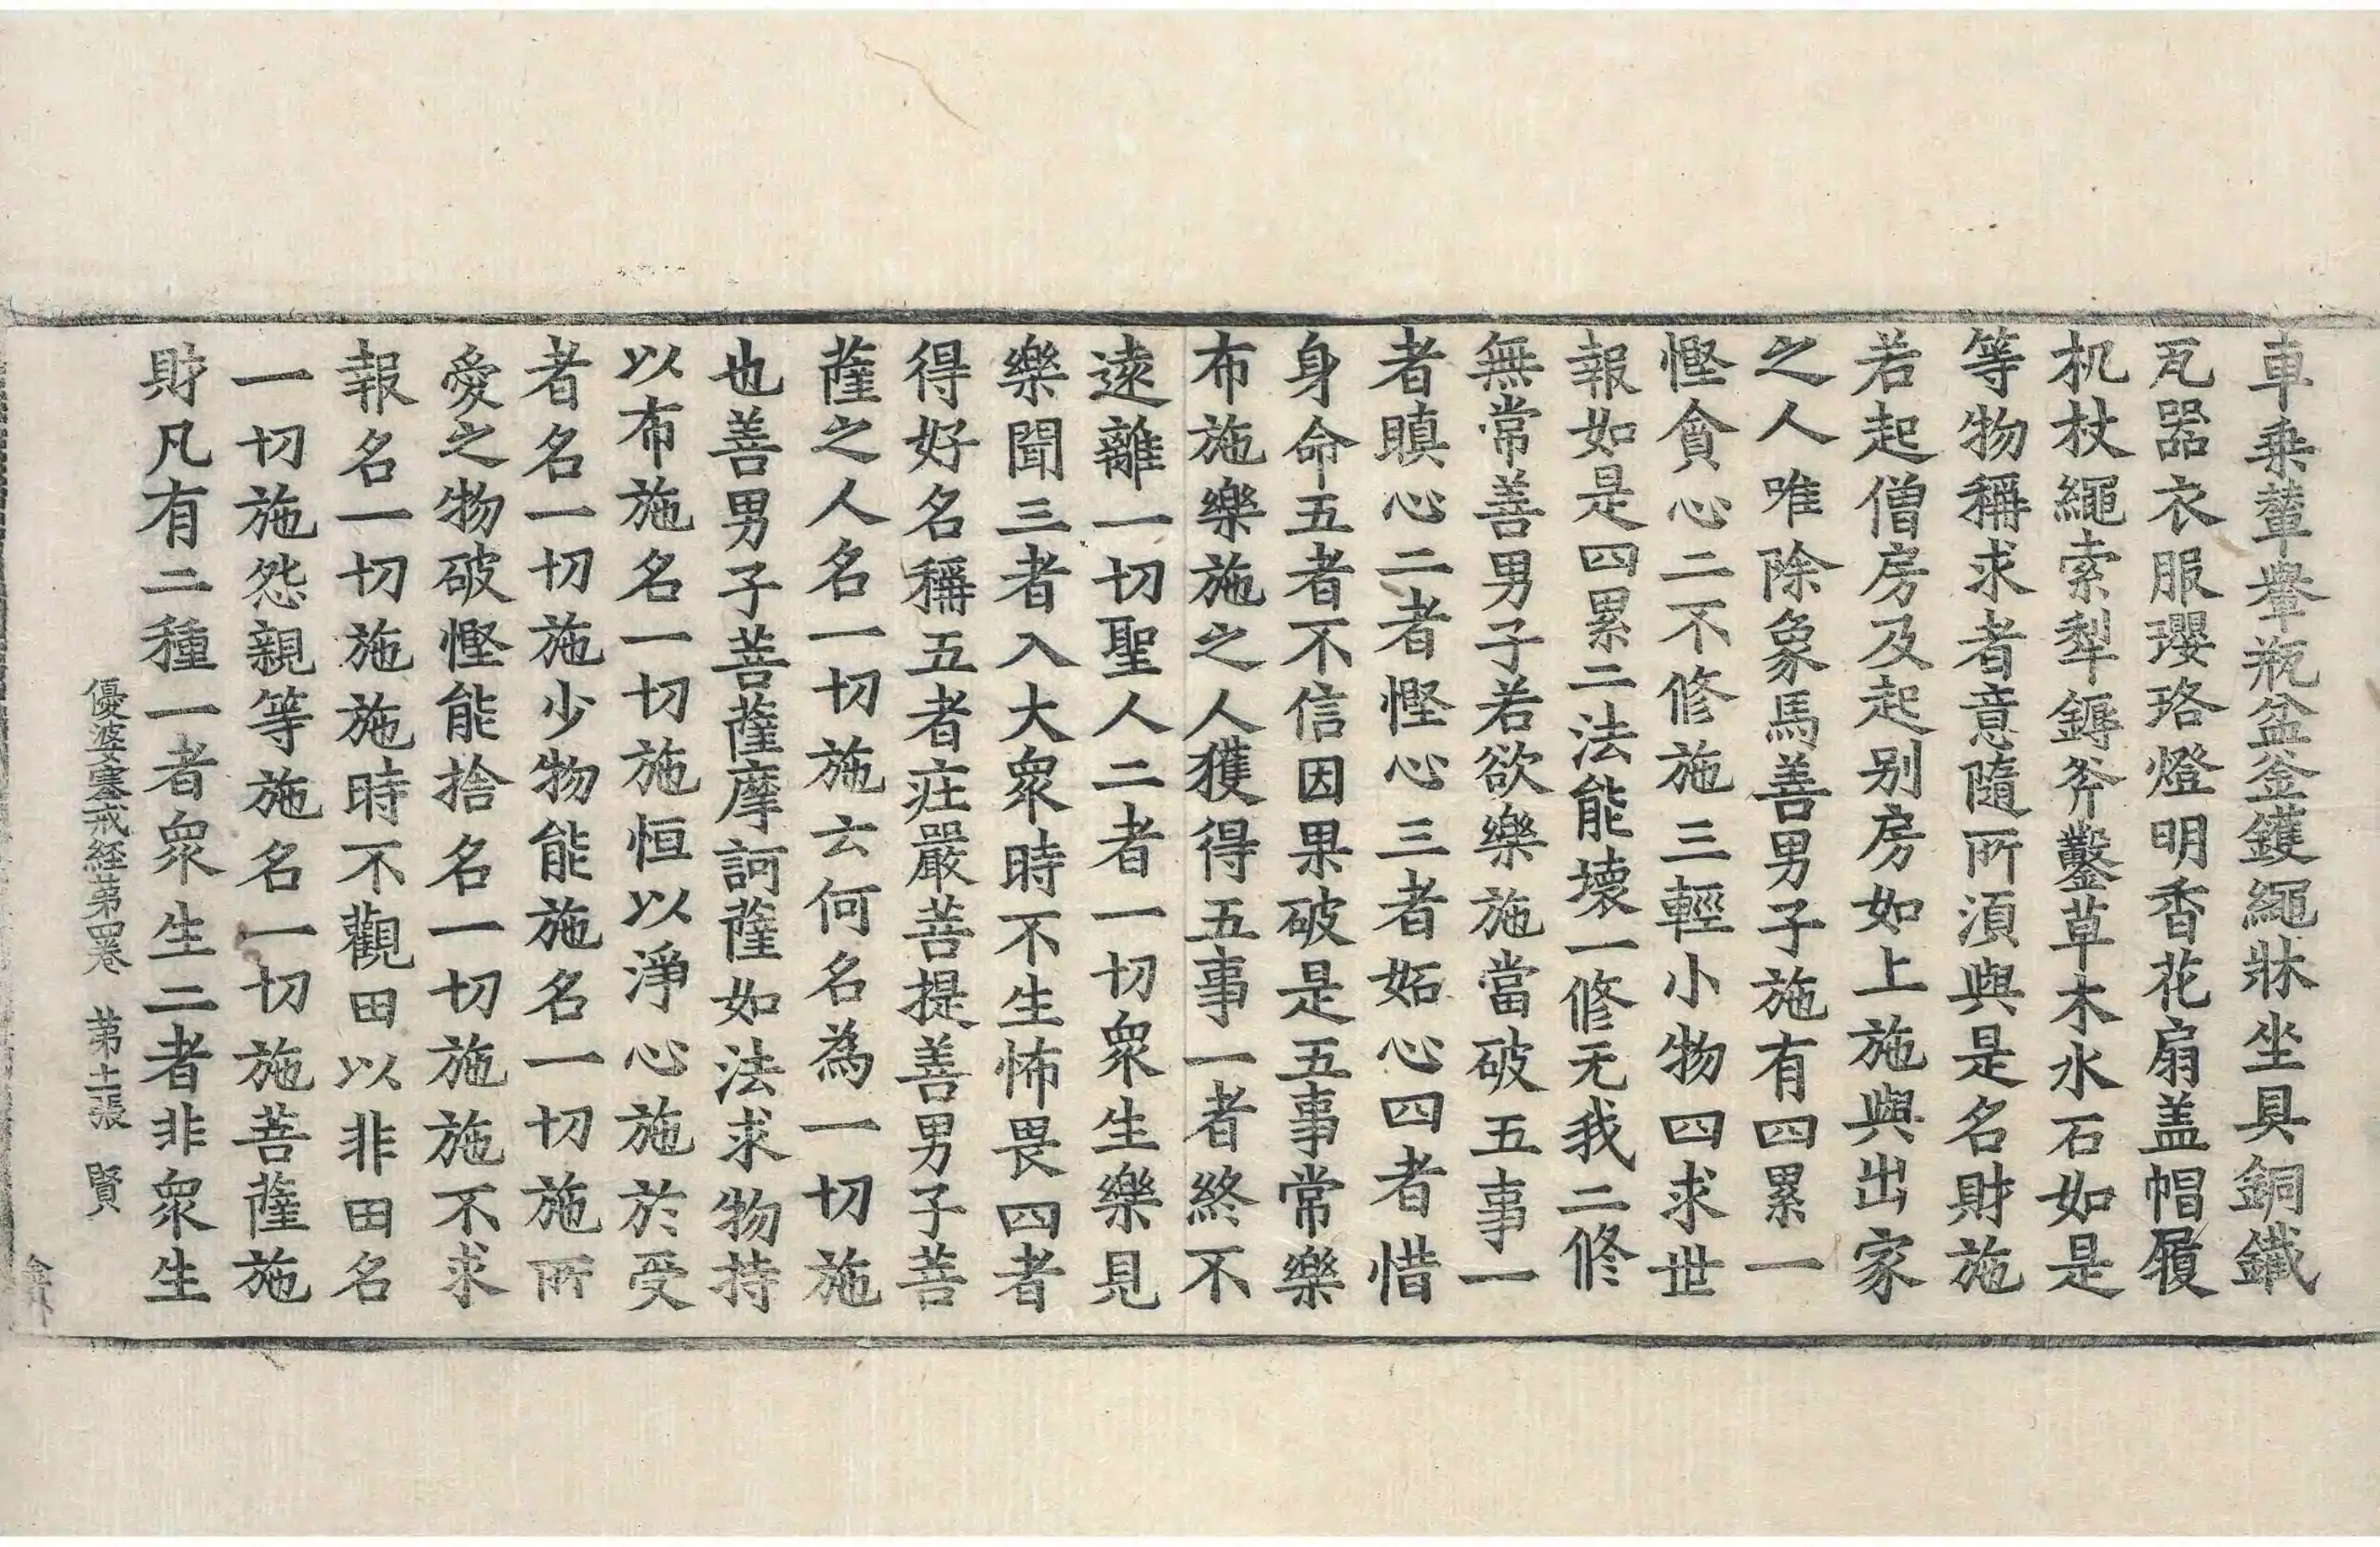 車乗輦轝瓶盆釜鑊繩牀坐具銅鐵
瓦器衣服瓔珞燈明香花扇盖帽履
机杖繩索犁鎒斧鑿草木水石如是
等物稱求者意隨所湏與是名財施
若起僧房及起别房如上施與出家
之人唯除象馬善男子施有四累一
慳貪心二不修施三輕小物四求世
報如是四累二法能壊一修无我二修
無常善男子若欲樂施當破五事一
者瞋心二者慳心三者妬心四者惜
身命五者不信因果破是五事常樂
布施樂施之人獲得五事一者終不
遠離一切聖人二者一切衆生樂見
樂聞三者入大衆時不生怖畏四者
得好名稱五者莊嚴菩提善男子菩
薩之人名一切施云何名為一切施
也善男子菩薩摩訶薩如法求物持
以布施名一切施恒以淨心施於受
者名一切施少物能施名一切施所
愛之物破慳能捨名一切施施不求
報名一切施施時不觀田以非田名
一切施怨親等施名一切施菩薩施
財凡有二種一者衆生二者非衆生
優婆塞戒経苐四卷 苐十張 賢